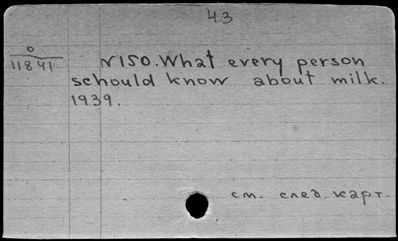 43
0
11841
N150. What every person
schould know about milk.
1939.
см. след. карт.